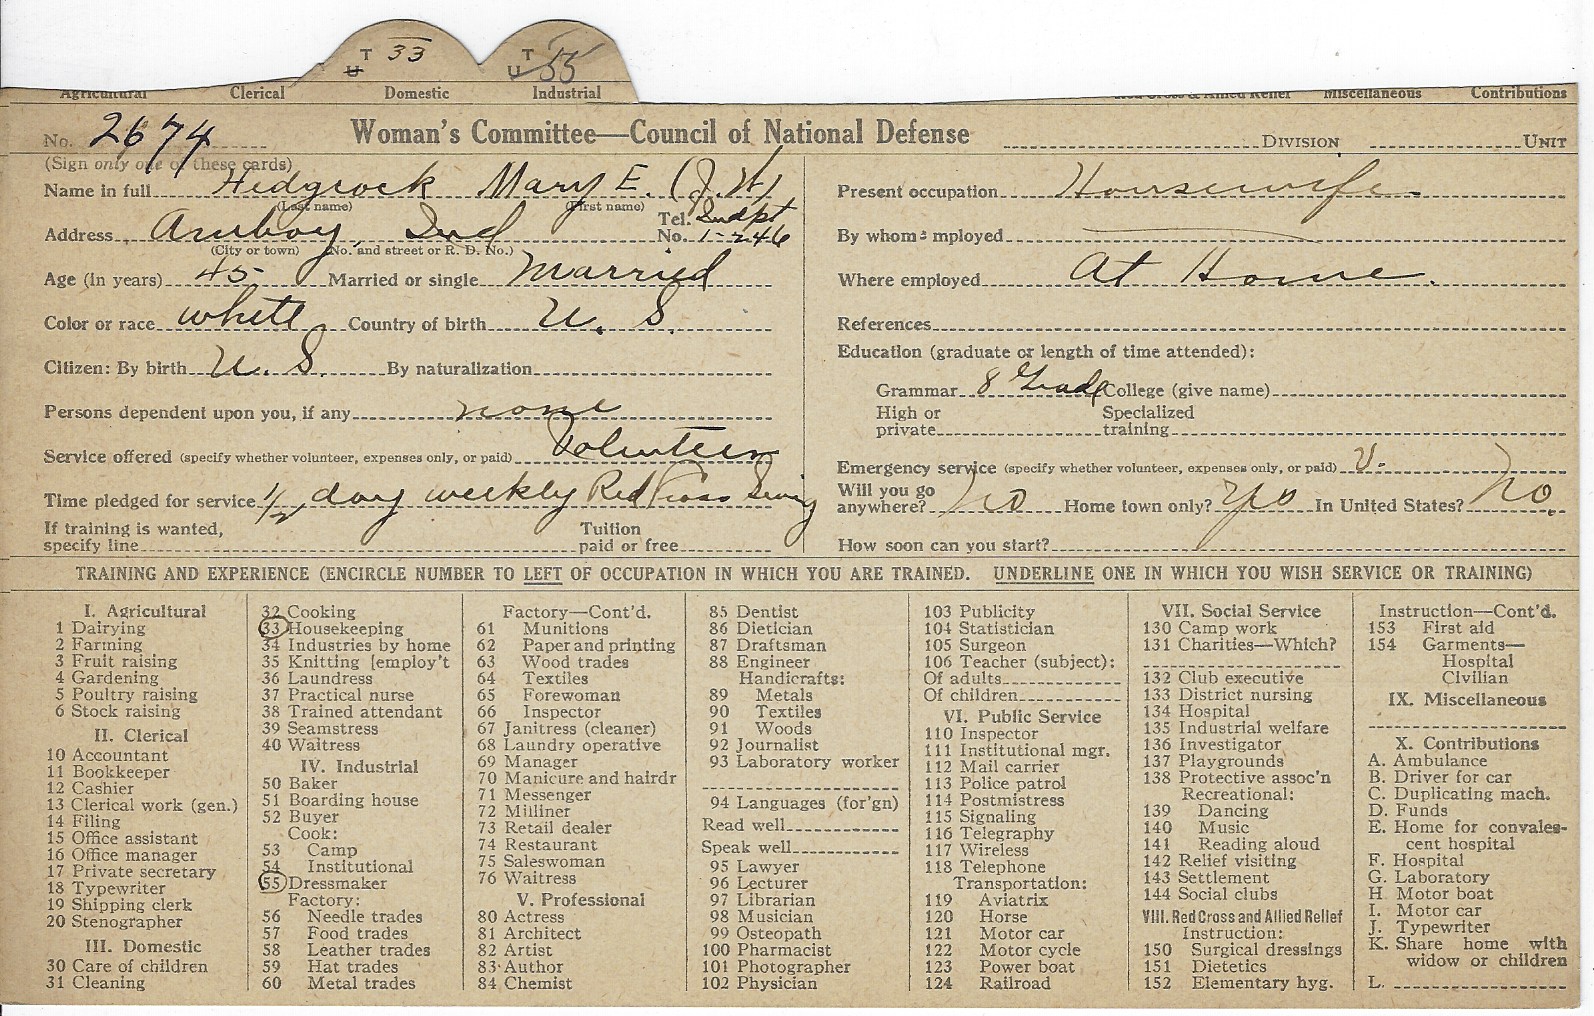 T
U 33
T
U 55
Agricultural Clerical Domestic Industrial Red Cross & Allied Relief Miscellaneous Contributions
No. 2674 Woman's Committee—Council of National Defense DIVISION UNIT
(Sign only one of these cards)
Name in full Hedgcock Mary E. (J. W)
(Last name) (First name)
Address Amboy, Ind Tel. No. Indpt 1-246
(City or town) (No. and street or R. D. No.)
Age (in years) 45 Married or single Married
Color or race white Country of birth U. S.
Citizen: By birth U. S. By naturalization
Persons dependent upon you, if any none
Service offered (specify whether volunteer, expenses only, or paid) Volunteer
Time pledged for service 1/2 day weekly Red Cross Sewing
If training is wanted, specify line Tuition paid or free
Present occupation Housewife
By whom employed
Where employed At Home.
References
Education (graduate or length of time attended):
Grammar 8 Grade College (give name)
High or private Specialized training
Emergency service (specify whether volunteer, expenses only, or paid) V.
Will you go anywhere? No Home town only? Yes In United States? No.
How soon can you start?
TRAINING AND EXPERIENCE (ENCIRCLE NUMBER TO LEFT OF OCCUPATION IN WHICH YOU ARE TRAINED. UNDERLINE ONE IN WHICH YOU WISH SERVICE OR TRAINING)
I. Agricultural
1 Dairying
2 Farming
3 Fruit raising
4 Gardening
5 Poultry raising
6 Stock raising
II. Clerical
10 Accountant
11 Bookkeeper
12 Cashier
13 Clerical work (gen.)
14 Filing
15 Office assistant
16 Office manager
17 Private secretary
18 Typewriter
19 Shipping clerk
20 Stenographer
III. Domestic
30 Care of children
31 Cleaning
32 Cooking
33 Housekeeping
34 Industries by home
35 Knitting [employ't
36 Laundress
37 Practical nurse
38 Trained attendant
39 Seamstress
40 Waitress
IV. Industrial
50 Baker
51 Boarding house
52 Buyer
Cook:
53 Camp
54 Institutional
55 Dressmaker
Factory:
56 Needle trades
57 Food trades
58 Leather trades
59 Hat trades
60 Metal trades
Factory—Cont'd.
61 Munitions
62 Paper and printing
63 Wood trades
64 Textiles
65 Forewoman
66 Inspector
67 Janitress (cleaner)
68 Laundry operative
69 Manager
70 Manicure and hairdr
71 Messenger
72 Milliner
73 Retail dealer
74 Restaurant
75 Saleswoman
76 Waitress
V. Professional
80 Actress
81 Architect
82 Artist
83 Author
84 Chemist
85 Dentist
86 Dietician
87 Draftsman
88 Engineer
Handicrafts:
89 Metals
90 Textiles
91 Woods
92 Journalist
93 Laboratory worker
94 Languages (for'gn)
Read well
Speak well
95 Lawyer
96 Lecturer
97 Librarian
98 Musician
99 Osteopath
100 Pharmacist
101 Photographer
102 Physician
103 Publicity
104 Statistician
105 Surgeon
106 Teacher (subject):
Of adults
Of children
VI. Public Service
110 Inspector
111 Institutional mgr.
112 Mail carrier
113 Police patrol
114 Postmistress
115 Signaling
116 Telegraphy
117 Wireless
118 Telephone
Transportation:
119 Aviatrix
120 Horse
121 Motor car
122 Motor cycle
123 Power boat
124 Railroad
VII. Social Service
130 Camp work
131 Charities—Which?
132 Club executive
133 District nursing
134 Hospital
135 Industrial welfare
136 Investigator
137 Playgrounds
138 Protective assoc'n
Recreational:
139 Dancing
140 Music
141 Reading aloud
142 Relief visiting
143 Settlement
144 Social clubs
VIII. Red Cross and Allied Relief
Instruction:
150 Surgical dressings
151 Dietetics
152 Elementary hyg.
Instruction—Cont'd.
153 First aid
154 Garments—
Hospital
Civilian
IX. Miscellaneous
X. Contributions
A. Ambulance
B. Driver for car
C. Duplicating mach.
D. Funds
E. Home for convales-
cent hospital
F. Hospital
G. Laboratory
H. Motor boat
I. Motor car
J. Typewriter
K. Share home with
widow or children
L.